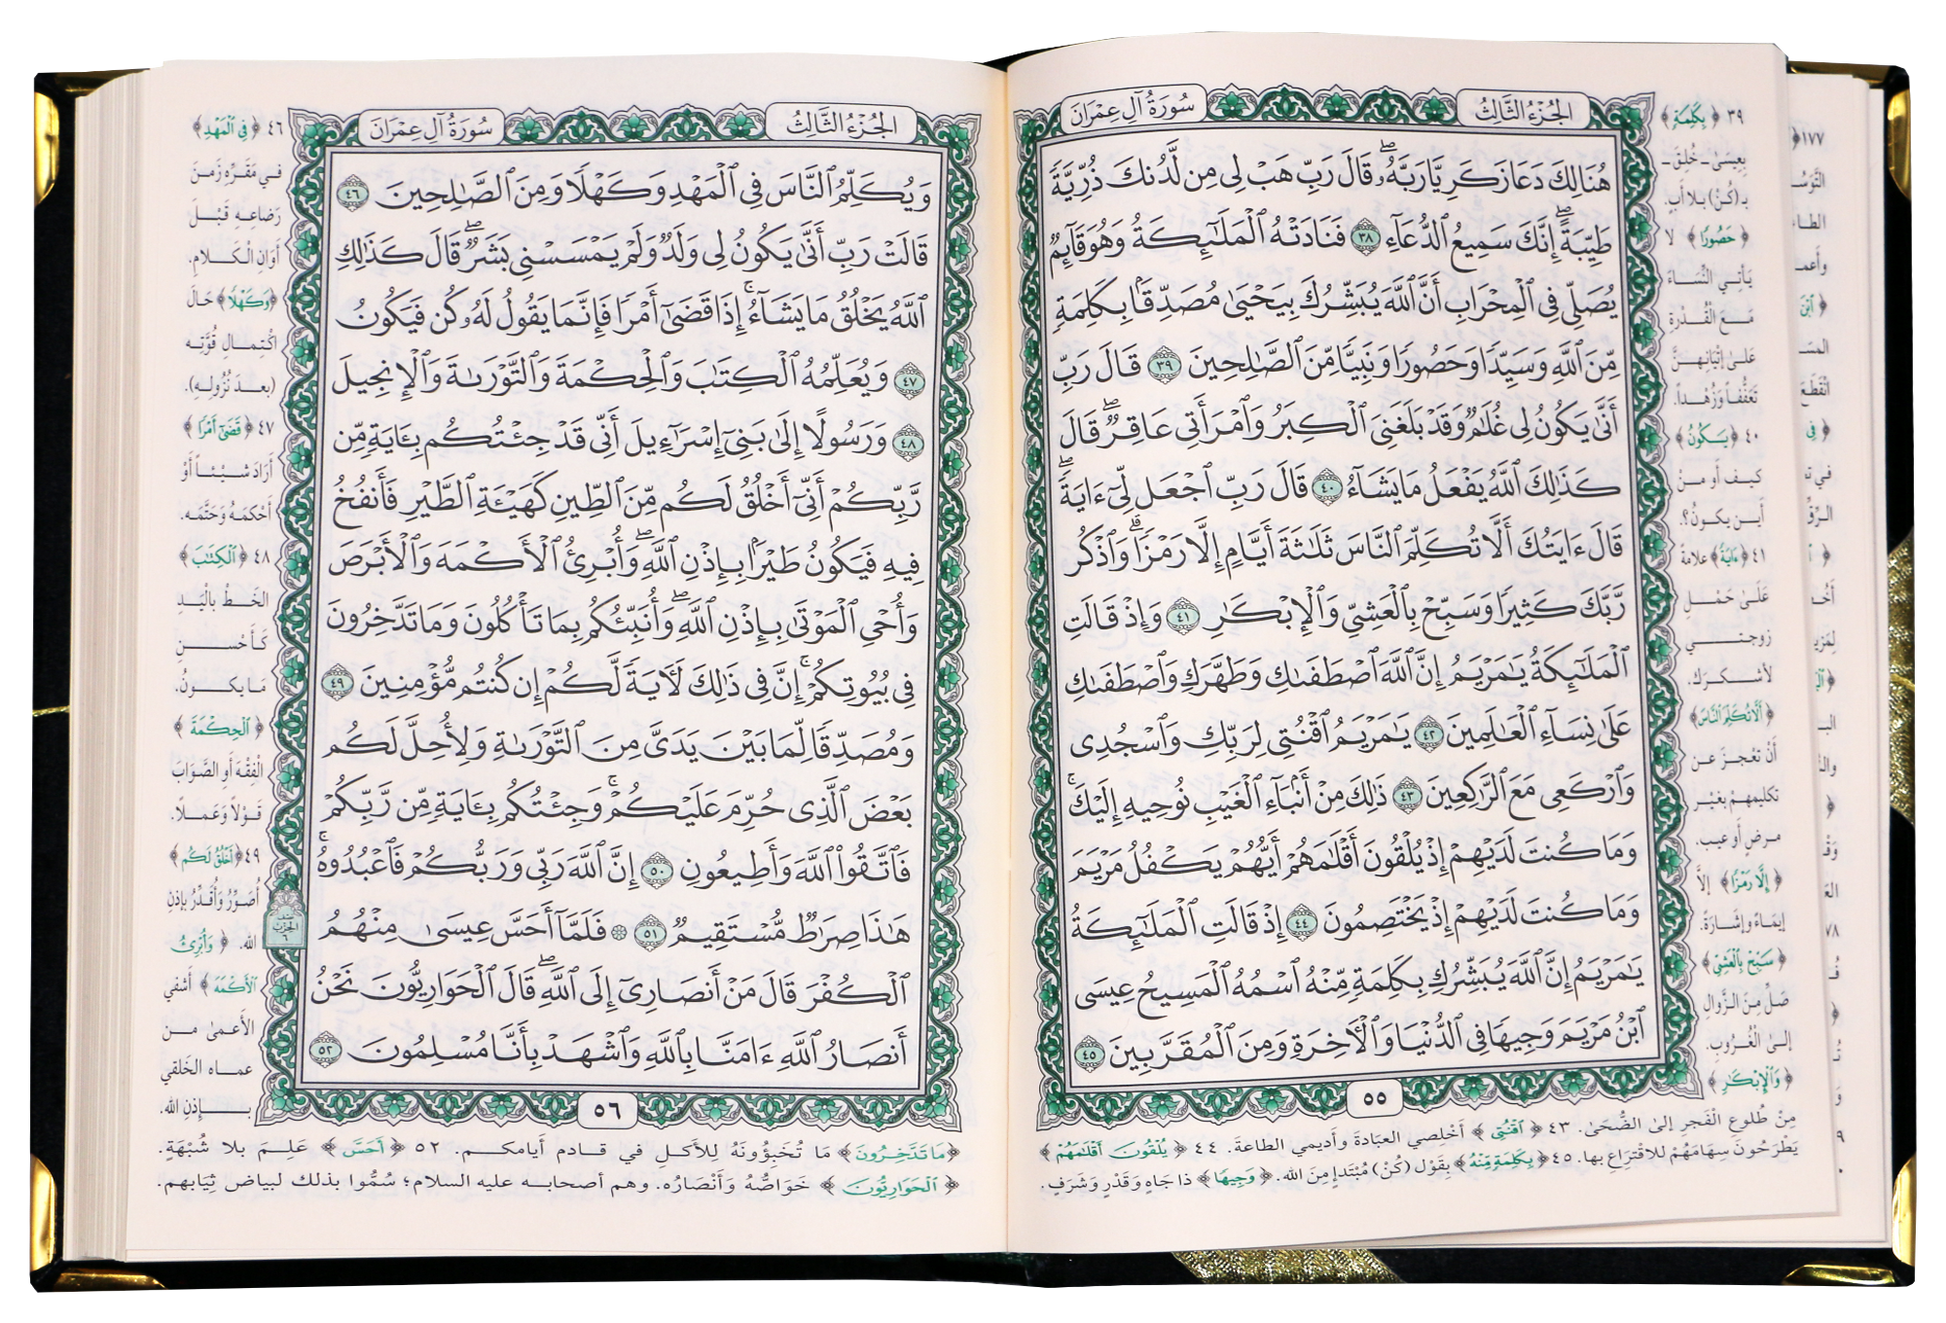 سُورَةُ آلِ عِمْرَانَ
الجُزْءُ الثَّالِثُ
هُنَالِكَ دَعَا زَكَرِيَّا رَبَّهُۥۖ قَالَ رَبِّ هَبْ لِى مِن لَّدُنكَ ذُرِّيَّةً
طَيِّبَةًۖ إِنَّكَ سَمِيعُ ٱلدُّعَآءِ ٣٨ فَنَادَتْهُ ٱلْمَلَٰٓئِكَةُ وَهُوَ قَآئِمٌ
يُصَلِّى فِى ٱلْمِحْرَابِ أَنَّ ٱللَّهَ يُبَشِّرُكَ بِيَحْيَىٰ مُصَدِّقًۢا بِكَلِمَةٍ
مِّنَ ٱللَّهِ وَسَيِّدًا وَحَصُورًا وَنَبِيًّا مِّنَ ٱلصَّٰلِحِينَ ٣٩ قَالَ رَبِّ
أَنَّىٰ يَكُونُ لِى غُلَٰمٌ وَقَدْ بَلَغَنِىَ ٱلْكِبَرُ وَٱمْرَأَتِى عَاقِرٌۖ قَالَ
كَذَٰلِكَ ٱللَّهُ يَفْعَلُ مَا يَشَآءُ ٤٠ قَالَ رَبِّ ٱجْعَل لِّىٓ ءَايَةًۖ
قَالَ ءَايَتُكَ أَلَّا تُكَلِّمَ ٱلنَّاسَ ثَلَٰثَةَ أَيَّامٍ إِلَّا رَمْزًاۗ وَٱذْكُر
رَّبَّكَ كَثِيرًا وَسَبِّحْ بِٱلْعَشِىِّ وَٱلْإِبْكَٰرِ ٤١ وَإِذْ قَالَتِ
ٱلْمَلَٰٓئِكَةُ يَٰمَرْيَمُ إِنَّ ٱللَّهَ ٱصْطَفَىٰكِ وَطَهَّرَكِ وَٱصْطَفَىٰكِ
عَلَىٰ نِسَآءِ ٱلْعَٰلَمِينَ ٤٢ يَٰمَرْيَمُ ٱقْنُتِى لِرَبِّكِ وَٱسْجُدِى
وَٱرْكَعِى مَعَ ٱلرَّٰكِعِينَ ٤٣ ذَٰلِكَ مِنْ أَنۢبَآءِ ٱلْغَيْبِ نُوحِيهِ إِلَيْكَۚ
وَمَا كُنتَ لَدَيْهِمْ إِذْ يُلْقُونَ أَقْلَٰمَهُمْ أَيُّهُمْ يَكْفُلُ مَرْيَمَ
وَمَا كُنتَ لَدَيْهِمْ إِذْ يَخْتَصِمُونَ ٤٤ إِذْ قَالَتِ ٱلْمَلَٰٓئِكَةُ
يَٰمَرْيَمُ إِنَّ ٱللَّهَ يُبَشِّرُكِ بِكَلِمَةٍ مِّنْهُ ٱسْمُهُ ٱلْمَسِيحُ عِيسَى
ٱبْنُ مَرْيَمَ وَجِيهًا فِى ٱلدُّنْيَا وَٱلْءَاخِرَةِ وَمِنَ ٱلْمُقَرَّبِينَ ٤٥
٥٥
٣٩ ﴿بِكَلِمَةٍ﴾
بِعِيسَىٰ - خُلِقَ -
بـ (كُنْ) بلا أبٍ.
﴿حَصُورًا﴾ لا
يَأتِي النِّسَاءَ
مَعَ الْقُدْرَةِ
عَلَىٰ إِتْيَانِهِنَّ
تَعَفُّفًا وَزُهْدًا.
٤٠ ﴿يَكُونُ﴾
كيف أو مِنْ
أَين يكونُ؟.
٤١ ﴿ءَايَةً﴾ علامةً
عَلَىٰ حَمْلِ
زوجتي
لأشكرك.
﴿أَلَّا تُكَلِّمَ النَّاسَ﴾
أَنْ تعْجِزَ عن
تكليمِهِمْ بغيْرِ
مرضٍ أو عيب.
﴿إِلَّا رَمْزًا﴾ إلَّا
إيمَاءً وإِشَارَةً.
﴿سَبِّحْ بِالْعَشِيِّ﴾
صَلِّ مِنَ الزَّوالِ
إلىٰ الْغُرُوبِ.
﴿وَالْإِبْكَٰرِ﴾
مِنْ طُلوعِ الْفَجرِ إلىٰ الضُّحَىٰ. ٤٣ ﴿اقْنُتِي﴾ أَخْلِصي العبَادةَ وأديمي الطاعةَ. ٤٤ ﴿يُلْقُونَ أَقْلَٰمَهُمْ﴾
يَطْرَحُونَ سِهَامَهُمْ للاقْتِرَاعِ بها. ٤٥ ﴿بِكَلِمَةٍ مِّنْهُ﴾ بِقَوْلِ (كُنْ) مُبْتَدإٍ مِنَ الله. ﴿وَجِيهًا﴾ ذا جَاهٍ وَقَدْرٍ وَشَرَفٍ.
الجُزْءُ الثَّالِثُ
سُورَةُ آلِ عِمْرَانَ
وَيُكَلِّمُ ٱلنَّاسَ فِى ٱلْمَهْدِ وَكَهْلًا وَمِنَ ٱلصَّٰلِحِينَ ٤٦
قَالَتْ رَبِّ أَنَّىٰ يَكُونُ لِى وَلَدٌ وَلَمْ يَمْسَسْنِى بَشَرٌۖ قَالَ كَذَٰلِكِ
ٱللَّهُ يَخْلُقُ مَا يَشَآءُۚ إِذَا قَضَىٰٓ أَمْرًا فَإِنَّمَا يَقُولُ لَهُۥ كُن فَيَكُونُ
٤٧ وَيُعَلِّمُهُ ٱلْكِتَٰبَ وَٱلْحِكْمَةَ وَٱلتَّوْرَىٰةَ وَٱلْإِنجِيلَ
٤٨ وَرَسُولًا إِلَىٰ بَنِىٓ إِسْرَٰٓءِيلَ أَنِّى قَدْ جِئْتُكُم بِـَٔايَةٍ مِّن
رَّبِّكُمْ أَنِّىٓ أَخْلُقُ لَكُم مِّنَ ٱلطِّينِ كَهَيْـَٔةِ ٱلطَّيْرِ فَأَنفُخُ
فِيهِ فَيَكُونُ طَيْرًۢا بِإِذْنِ ٱللَّهِۖ وَأُبْرِئُ ٱلْأَكْمَهَ وَٱلْأَبْرَصَ
وَأُحْىِ ٱلْمَوْتَىٰ بِإِذْنِ ٱللَّهِۖ وَأُنَبِّئُكُم بِمَا تَأْكُلُونَ وَمَا تَدَّخِرُونَ
فِى بُيُوتِكُمْۚ إِنَّ فِى ذَٰلِكَ لَءَايَةً لَّكُمْ إِن كُنتُم مُّؤْمِنِينَ ٤٩
وَمُصَدِّقًا لِّمَا بَيْنَ يَدَىَّ مِنَ ٱلتَّوْرَىٰةِ وَلِأُحِلَّ لَكُم
بَعْضَ ٱلَّذِى حُرِّمَ عَلَيْكُمْۚ وَجِئْتُكُم بِـَٔايَةٍ مِّن رَّبِّكُمْ
فَٱتَّقُوا۟ ٱللَّهَ وَأَطِيعُونِ ٥٠ إِنَّ ٱللَّهَ رَبِّى وَرَبُّكُمْ فَٱعْبُدُوهُۚ
هَٰذَا صِرَٰطٌ مُّسْتَقِيمٌ ٥١ ۞ فَلَمَّآ أَحَسَّ عِيسَىٰ مِنْهُمُ
ٱلْكُفْرَ قَالَ مَنْ أَنصَارِىٓ إِلَى ٱللَّهِۖ قَالَ ٱلْحَوَارِيُّونَ نَحْنُ
أَنصَارُ ٱللَّهِ ءَامَنَّا بِٱللَّهِ وَٱشْهَدْ بِأَنَّا مُسْلِمُونَ ٥٢
٥٦
٤٦ ﴿فِي الْمَهْدِ﴾
في مَقَرِّهِ زَمنَ
رَضاعِهِ قَبْلَ
أَوَانِ الْكَلامِ.
﴿وَكَهْلًا﴾ حَالَ
اكْتِمالِ قُوَّتِه
(بعدَ نُزُولِهِ).
٤٧ ﴿قَضَىٰ أَمْرًا﴾
أَرَادَ شيْئاً أَوْ
أَحْكمَهُ وَحَتَّمَه.
٤٨ ﴿الْكِتَٰبَ﴾
الخَطَّ بالْيَدِ
كَأَحْسنِ
مَا يكونُ.
﴿الْحِكْمَةَ﴾
الْفِقْهَ أوِ الصَّوَابَ
قَوْلًا وَعَملًا.
٤٩ ﴿أَخْلُقُ لَكُم﴾
أُصَوِّرُ وَأُقَدِّرُ بإذنِ
الله. ﴿وَأُبْرِئُ
الْأَكْمَهَ﴾ أَشْفي
الأَعمىٰ من
عماه الخَلقي
بإِذنِ الله.
﴿مَا تَدَّخِرُونَ﴾ مَا تُخَبِّؤُونَهُ لِلأكلِ في قادم أيامكم. ٥٢ ﴿أَحَسَّ﴾ عَلِمَ بلا شُبْهَةٍ.
﴿الْحَوَارِيُّونَ﴾ خَوَاصُّهُ وَأَنْصَارُه. وهم أصحابه عليه السلام؛ سُمُّوا بذلك لبياض ثِيَابهم.